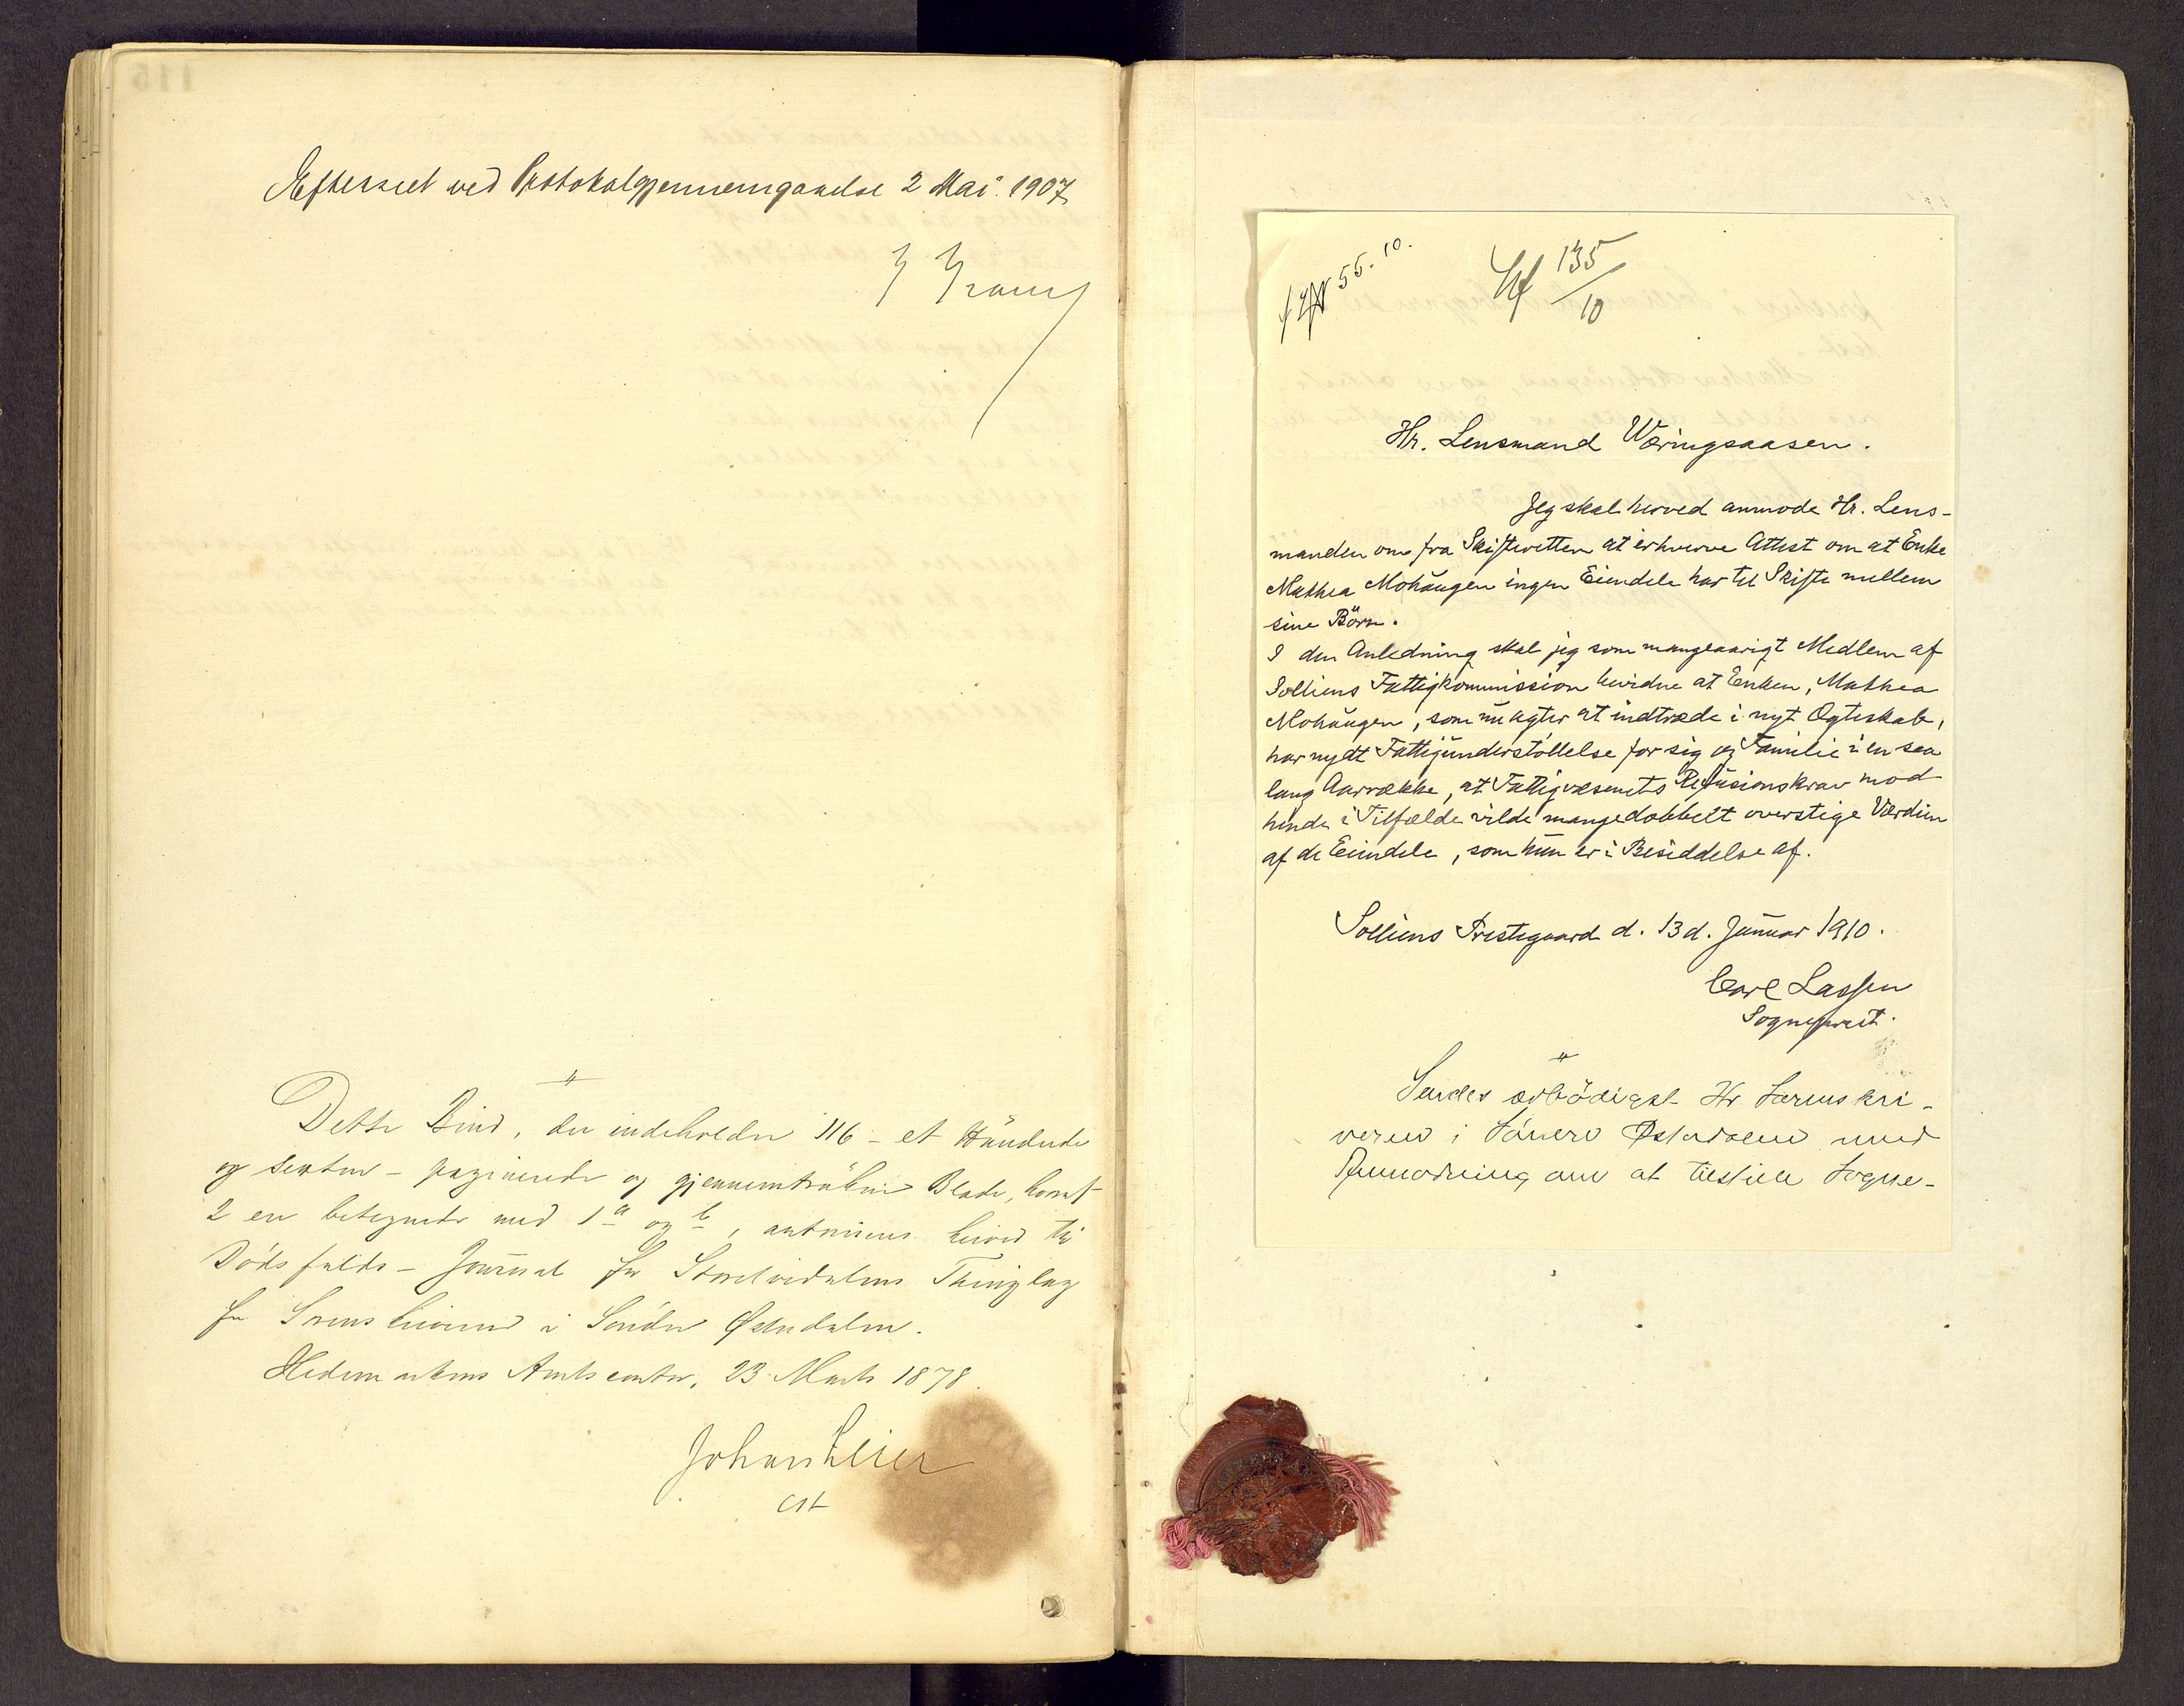 Efterseet ved Protokolgjennemgaaelse 2 Mai 1907
Dette Bind, der indeholder 116 - et Hundrede
og sexten - paginerede og gjennemtrukne Blade, hvoraf
2 er betegnede med 1a og b, autoriseres herved til
Dødsfalds-Journal for Storelvedalens Thinglag
for Sorenskriveren i Søndre Østerdalen.
Hedemarkens Amtscontor, 23 Marts 1878.
cst
55. 10.
135/10
Hr. Lensmand Væringsaasen.
Jeg skal herved anmode Hr. Lens-
manden om fra Skifteretten at erhverve Attest om at Enke
Mathea Mohaugen ingen Eiendele har til Skifte mellem
sine Börn.
I den Anledning skal jeg som mangeaarigt Medlem af
Solliens Fattigkommission bevidne at Enken, Mathea
Mohaugen, som nu agter at indtræde i nyt Ægteskab,
har nydt Fattigunderstöttelse for sig og Familie i en saa
lang Aarrække, at Fattigvæsenets Refusionskrav mod
hende i Tilfælde vilde mangedobbelt overstige Værdien
af de Eiendele, som hun er i Besiddelse af.
Solliens Prestegaard d. 13d. Januar 1910.
Carl Lassen
Sogneprest.
Sendes ærbödigst Hr Sorenskri-
veren i Söndre Østerdalen med
Anmodning om at tilstille Sogne-